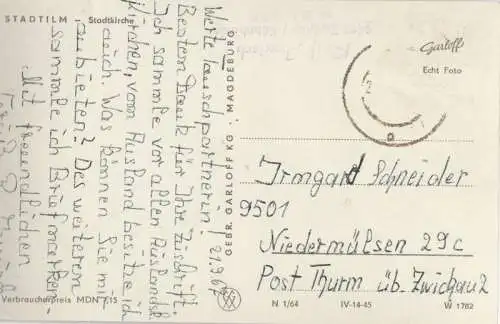 STADTILM Stadtkirche
Werte Tauschpartnerin! 21.9.67
Besten Dank für Ihre Zuschrift.
Ich sammle vor allen Auslands
kirchen, vom Ausland besitze ich
auch. Was können Sie mir
anbieten? Des weiteren
sammle ich Briefmarken.
Mit freundlichen
Verbraucherpreis MDN 0,15
GEBR. GARLOFF KG, MAGDEBURG
Garloff
Echt Foto
Irmgard Schneider
9501
Niedermülsen 29c
Post Thurm üb. Zwickau 2
N 1/64 IV-14-45 W 1762